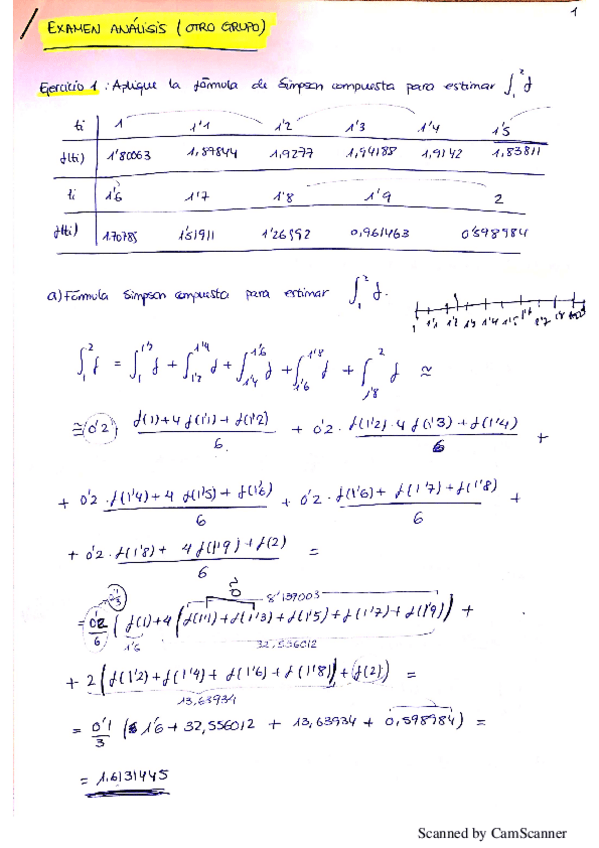 1
EXAMEN ANÁLISIS (OTRO GRUPO)
Ejercicio 1: Aplique la fórmula de Simpson compuesta para estimar ∫₁² f
ti 1 1'1 1'2 1'3 1'4 1'5
f(ti) 1'80063 1,89844 1,9277 1,94188 1,9142 1,83811
ti 1'6 1'7 1'8 1'9 2
f(ti) 1.70785 1'51911 1'26592 0,961463 0'598984
a) Fórmula Simpson compuesta para estimar ∫₁² f.
1 1'1 1'2 1'3 1'4 1'5 1'6 1'7 1'8
∫₁² f = ∫₁^1'2 f + ∫_1'2^1'4 f + ∫_1'4^1'6 f + ∫_1'6^1'8 f + ∫_1'8^2 f ≃
≅ 0'2 · (f(1)+4f(1'1)+f(1'2))/6 + 0'2 · (f(1'2)·4f(1'3)+f(1'4))/6 +
+ 0'2 · (f(1'4)+4f(1'5)+f(1'6))/6 + 0'2 · (f(1'6)+ f(1'7)+f(1'8))/6 +
+ 0'2 · (f(1'8)+ 4f(1'9)+f(2))/6 =
8'139003
= 0'2/6 (f(1)+4(f(1'1)+f(1'3)+f(1'5)+f(1'7)+f(1'9)) +
1'6 32,556012
+ 2(f(1'2)+f(1'4)+f(1'6)+f(1'8))+f(2)) =
13,63934
= 0'1/3 (1'6 + 32,556012 + 13,63934 + 0,598984) =
= 1.6131445
Scanned by CamScanner